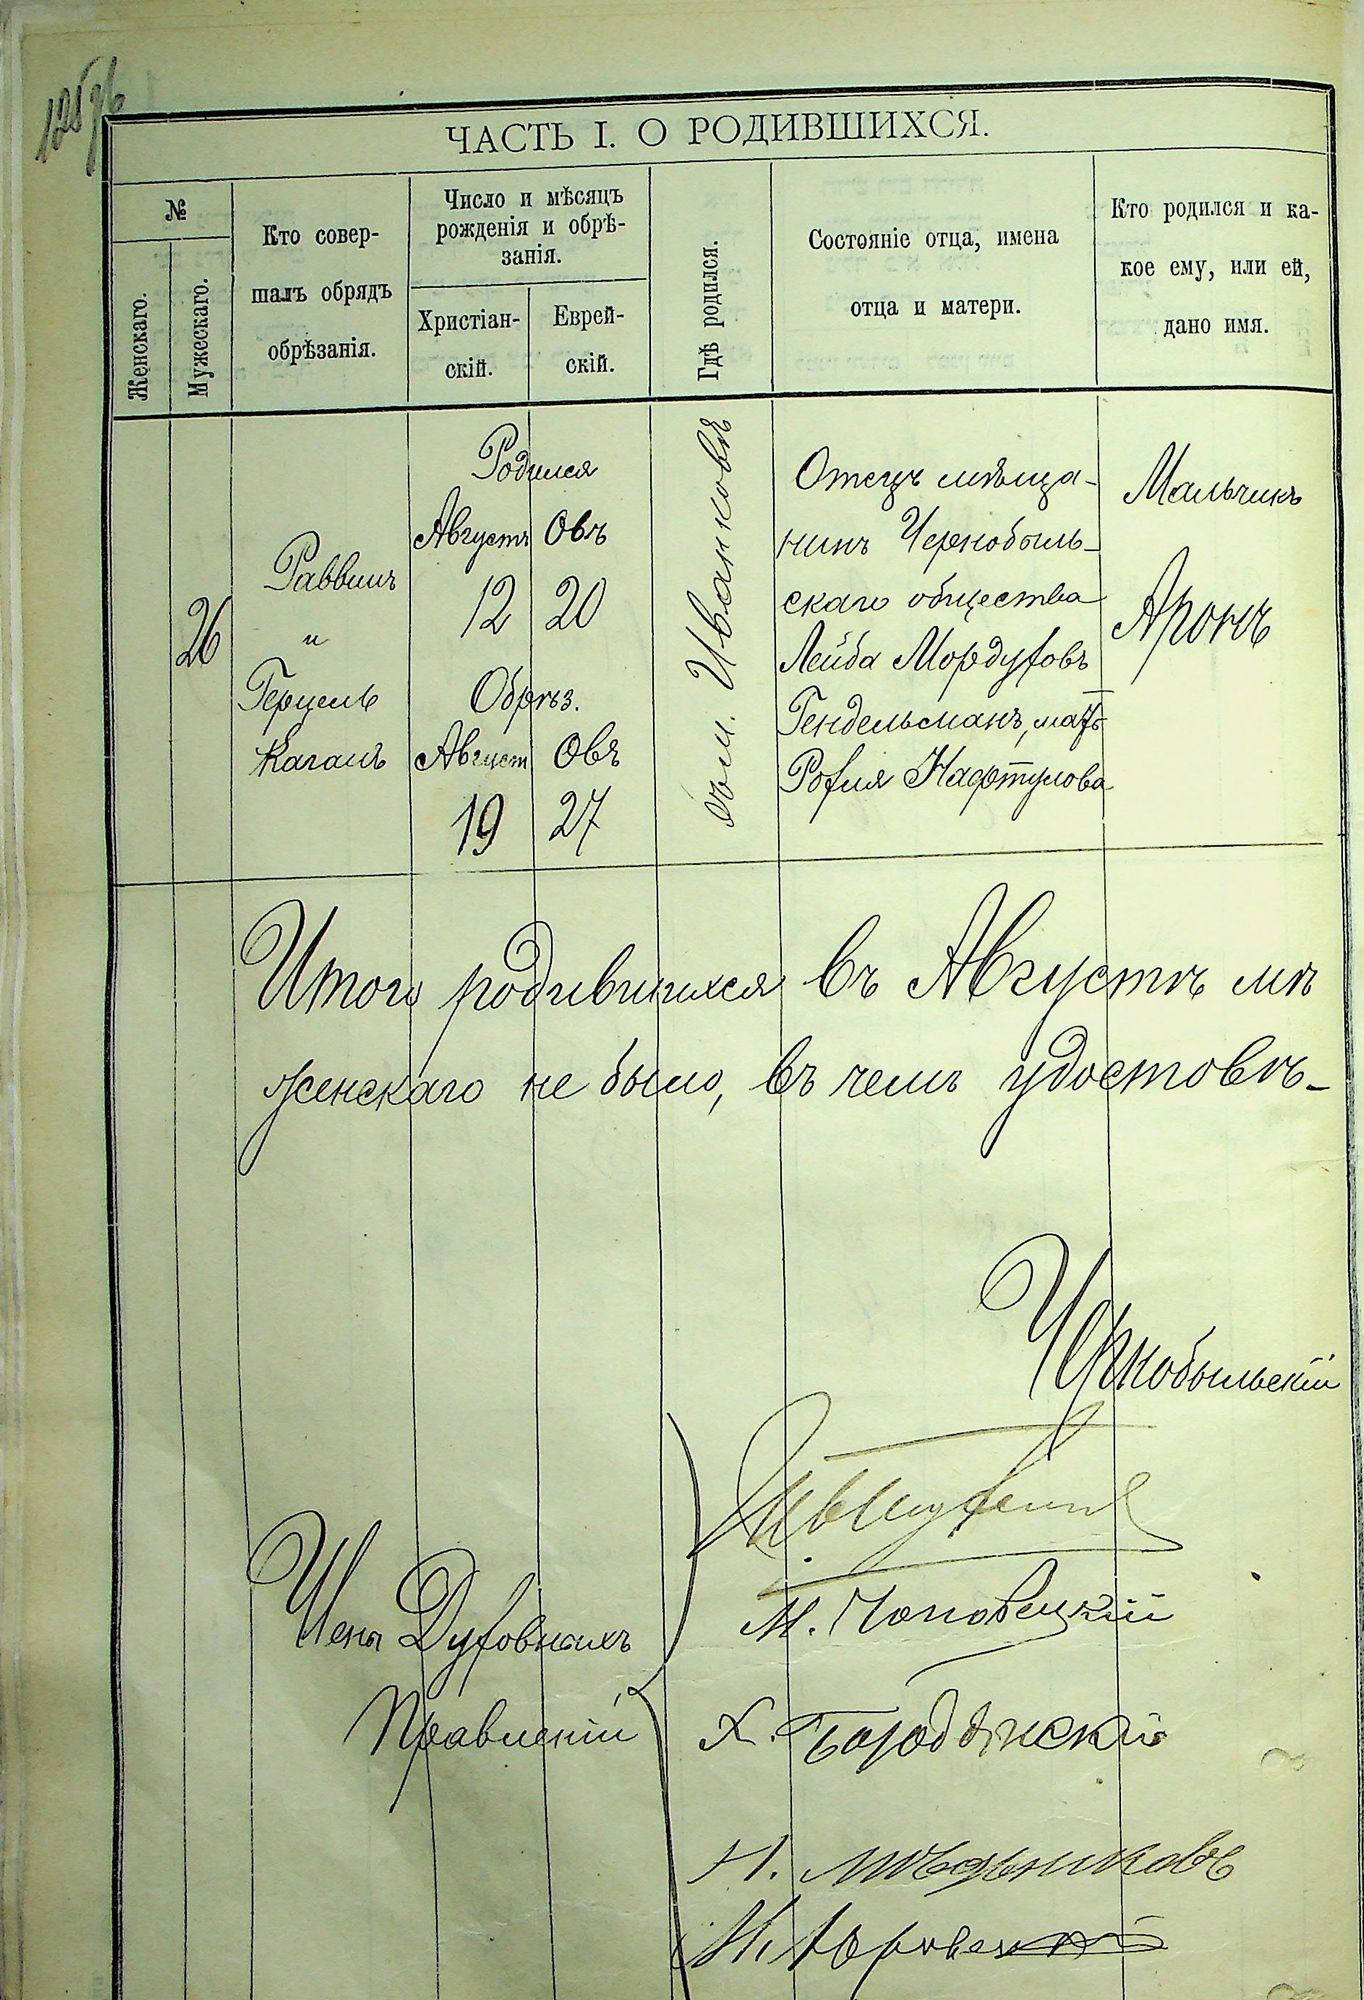 ЧАСТЬ I. О РОДИВШИХСЯ.
№
Женскаго.
Мужескаго.
Кто совер-
шалъ обрядъ
обрѣзанія.
Число и мѣсяцъ
рожденія и обрѣ-
занія.
Христіан-
скій.
Еврей-
скій.
Гдѣ родился.
Состояніе отца, имена
отца и матери.
Кто родился и ка-
кое ему, или ей,
дано имя.
26
Раввинъ
и
Герцель
Каганъ
Родился
Августъ Овъ
12 20
Обрѣз.
Август Овъ
19 27
Иванковѣ
Отецъ мѣща-
нинъ Чернобыль-
скаго общества
Лейба Мордуховъ
Гендельманъ, мать
Рохля Нафтулова
Мальчикъ
Аронъ
Итого родившихся въ Августѣ мѣ
женскаго не было, въ чемъ удостовѣ-
Чернобыльскій
Члены Духовныхъ
Правленій
М. Чоповецкій
Х. Бородянскій
Н. Мѣдниковъ